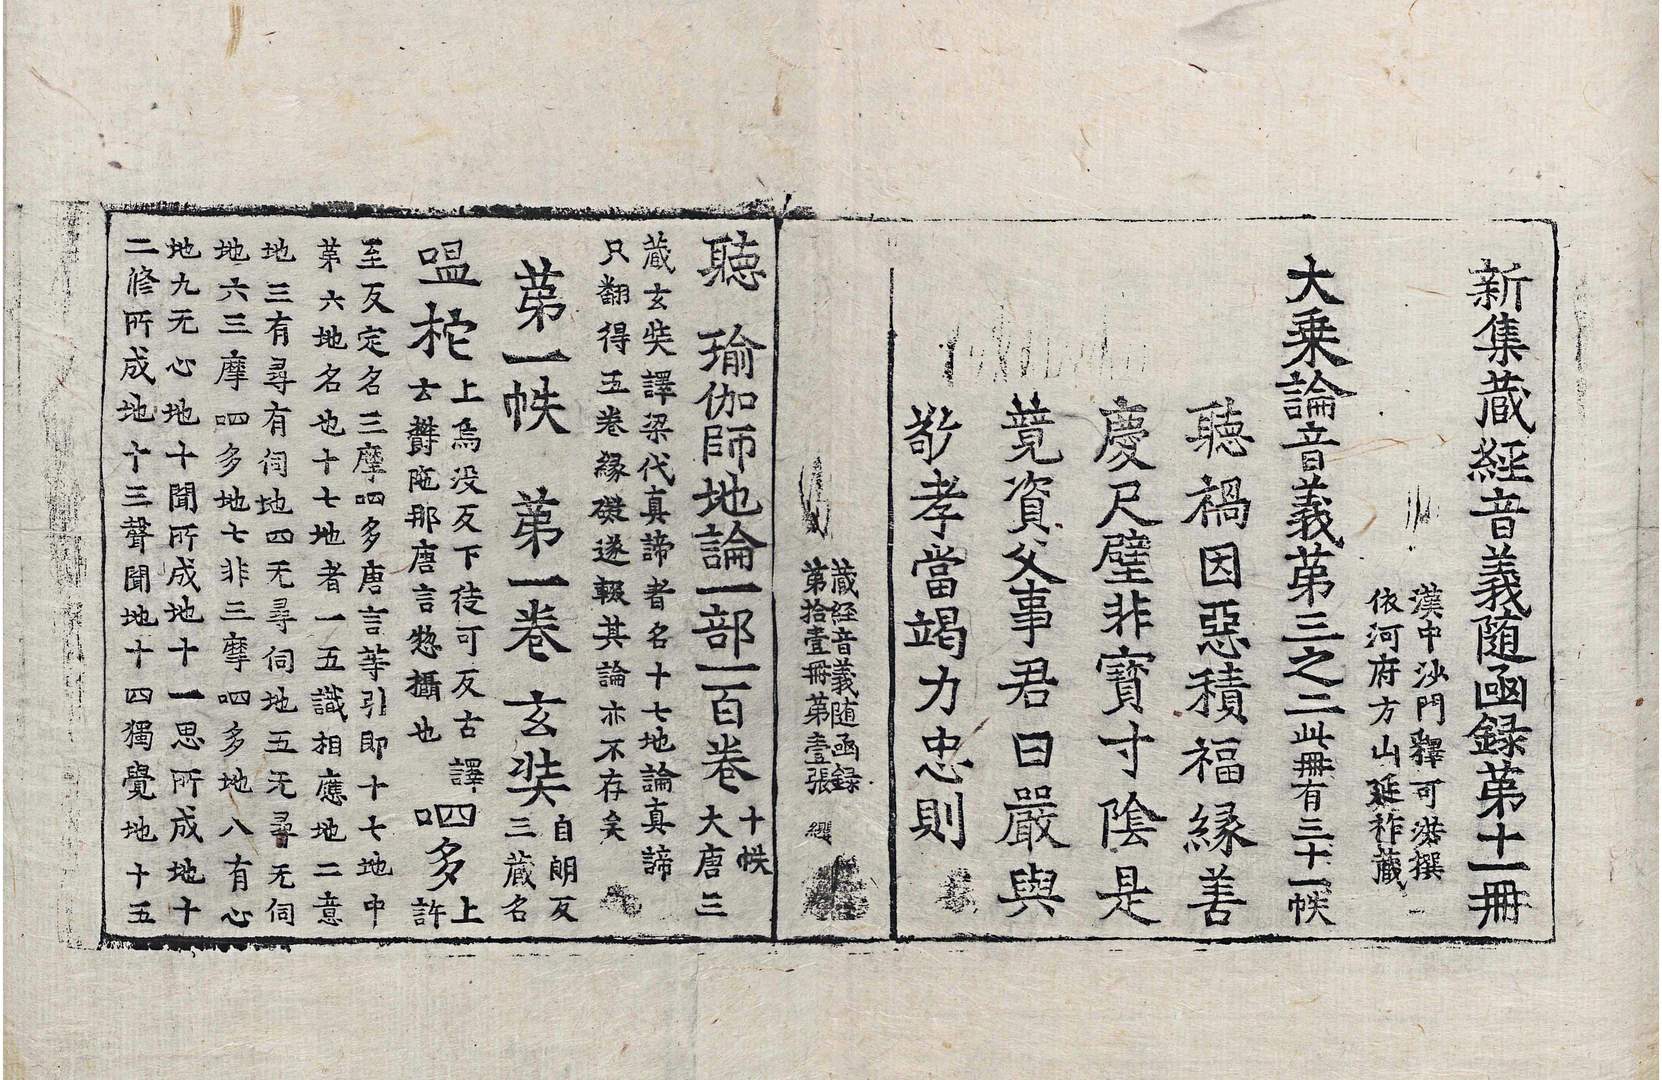 新集蔵經音義随函錄第十一冊
漢中沙門釋可洪撰
依河府方山延祚蔵
大乗論音義苐三之二此冊有三十一帙
聽禍因惡積福緣善
慶尺璧非寶寸陰是
競資父事君曰嚴與
敬孝當竭力忠則
蔵経音義随函録
第拾壹冊第壹張
聽 瑜伽師地論一部一百卷十帙
大唐三
蔵玄奘譯梁代真諦者名十七地論真諦
只翻得五卷緣礙遂輟其論亦不存矣
苐一帙 苐一卷 玄奘自朗反
三蔵名
嗢柁上烏没反下徒可反古譯
云欝陁那唐言惣攝也
呬多上
許
至反定名三摩呬多唐言等引即十七地中
苐六地名也十七地者一五識相應地二意
地三有尋有伺地四无尋伺地五无尋无伺
地六三摩呬多地七非三摩呬多地八有心
地九无心地十聞所成地十一思所成地十
二修所成地十三聲聞地十四獨覺地十五